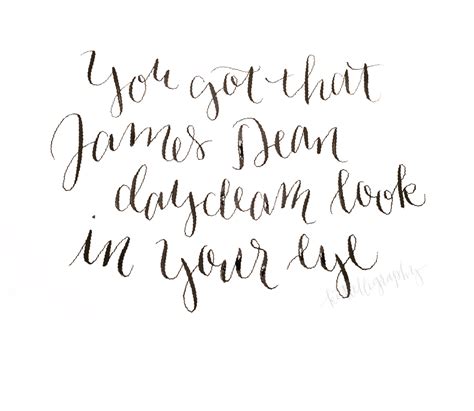 You got that
James Dean
daydream look
in your eye